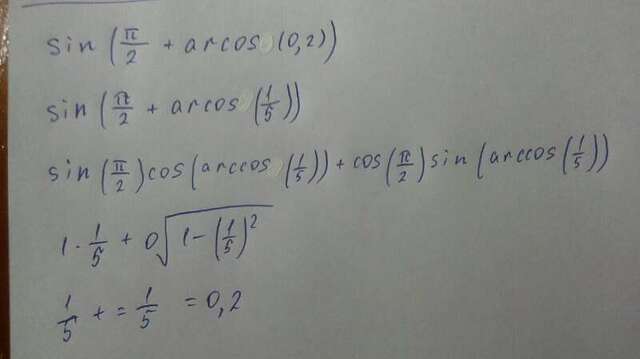 sin (π/2 + arcos (0,2))
sin (π/2 + arcos (1/5))
sin (π/2) cos (arccos (1/5)) + cos (π/2) sin (arccos (1/5))
1 · 1/5 + 0√(1 - (1/5)²)
1/5 + = 1/5 = 0,2